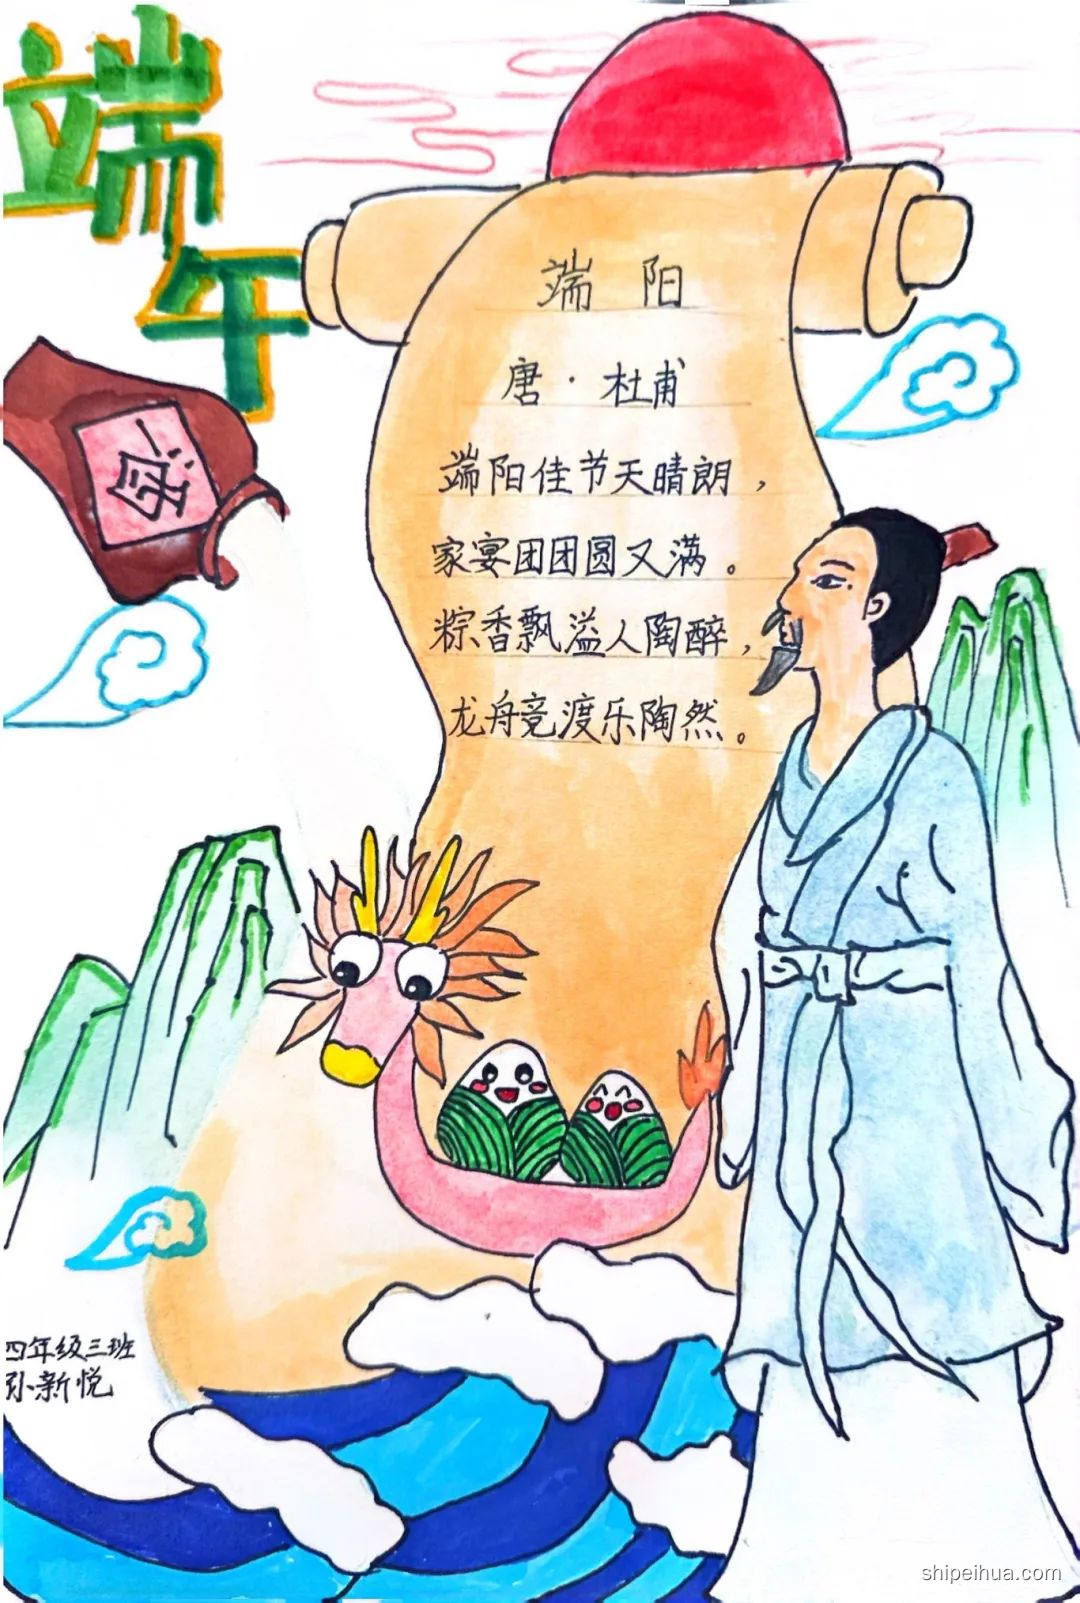 端午
酒
端 阳
唐·杜甫
端阳佳节天晴朗，
家宴团团圆又满。
粽香飘溢人陶醉，
龙舟竞渡乐陶然。
四年级三班
孙新悦
shipeihua.com